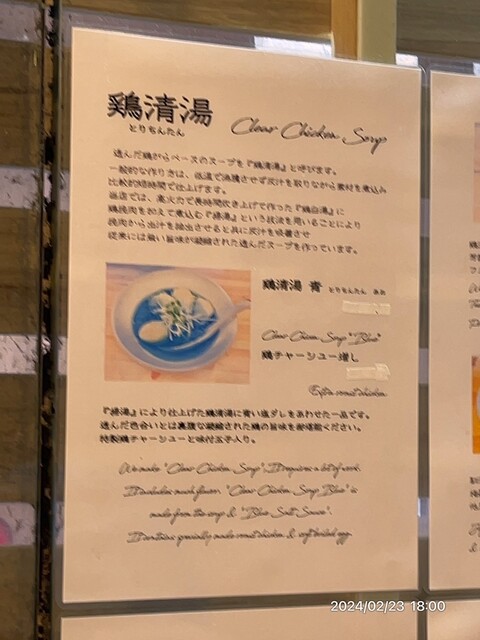 鶏清湯
とりちんたん
Clear Chicken Soup
澄んだ鶏がらベースのスープを『鶏清湯』と呼びます。
一般的な作り方は、低温で沸騰させず灰汁を取りながら素材を煮込み
比較的短時間で仕上げます。
当店では、高火力で長時間炊き上げて作った『鶏白湯』に
鶏挽肉を加えて煮込む『掃湯』という技法を用いることにより
挽肉から出汁を抽出させると共に灰汁を吸着させ
従来には無い旨味が凝縮された澄んだスープを作っています。
鶏清湯 青 とりちんたん あお
Clear Chicken Soup "Blue"
鶏チャーシュー増し
Extra roast chicken
『掃湯』により仕上げた鶏清湯に青い塩ダレをあわせた一品です。
澄んだ色合いとは裏腹な凝縮された鶏の旨味を御堪能ください。
特製鶏チャーシューと味付玉子入り。
We make "Clear Chicken Soup". It requires a lot of work.
It includes much flavor. "Clear Chicken Soup Blue" is
made from the soup & "Blue Salt Sauce".
It contains specially made roast chicken & soft boiled egg.
2024/02/23 18:00